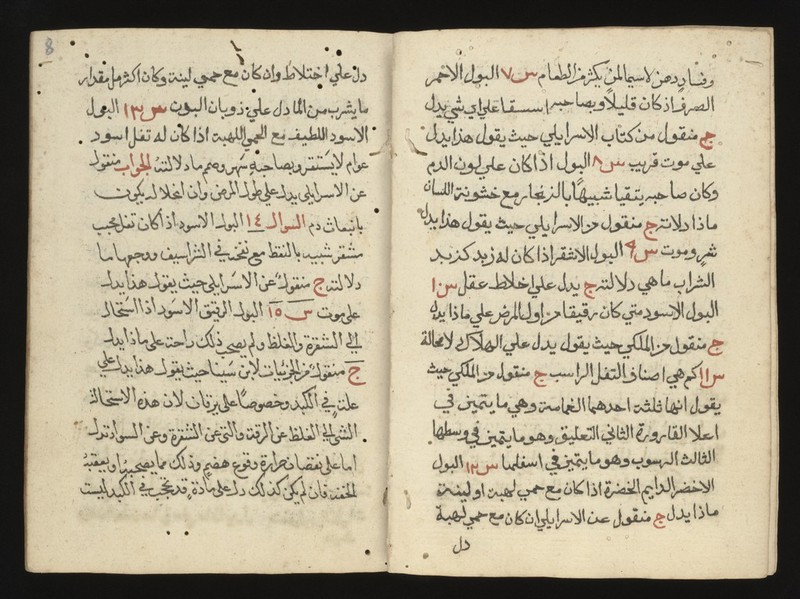 وفساد دهن لاسيما لمن يكثر من الطعام س ٧ البول الاحمر
الصرف اذ كان قليلا وبصاحبه استسقا علي اي شي يدل
ج منقول من كتاب الاسرايلي حيث يقول هذا يدل
علي موت قريب س ٨ البول اذا كان علي لون الدم
وكان صاحبه يتقيا شبيها بالزنجار مع خشونة اللسان
ماذا دلالته ج منقول من الاسرايلي حيث يقول هذا يدل
شر وموت س ٩ البول الاشقر اذا كان له زبد كزبد
الشراب ما هي دلالته ج يدل علي اختلاط عقل س ١٠
البول الاسود متي كان رقيقا من اول المرض علي ماذا يدل
ج منقول من الملكي حيث يقول يدل علي الهلاك لا محالة
س ١١ كم هي اصناف الثفل الراسب ج منقول من الملكي حيث
يقول انها ثلثة احدهما الغمامة وهي ما يتميز في
اعلا القارورة الثاني التعليق وهو ما يتميز في وسطها
الثالث الرسوب وهو ما يتميز في اسفلها س ١٢ البول
الاخضر الدايم الخضرة اذا كان مع حمي لهبة او لينة
ماذا يدل ج منقول عن الاسرايلي ان كان مع حمي لهبة
دل
8
دل علي اختلاط وان كان مع حمي لينة وكان اكثر من مقدار
ما يشرب من الما دل علي ذوبان البدن س ١٣ البول
الاسود اللطيف مع الحمي اللهبة اذا كان له ثفل اسود
عوام لا يستقر وبصاحبه سهر وصمم ما دلالته الجواب منقول
عن الاسرايلي يدل علي طول المرض وان انحلاله يكون
بانبعاث دم السوال ١٤ البول الاسود اذا كان ثفل محبب
مشقر شبيه بالنقط مع نفخ في الشراسيف ووجعها ما
دلالته ج منقول عن الاسرايلي حيث يقول هذا يدل
علي موت س ١٥ البول الرقيق الاسود اذا استحال
الي الشقرة والغلظ ولم يصحب ذلك راحة علي ماذا يدل
ج منقول من الجزييات لابن سينا حيث يقول هذا يدل علي
علة في الكبد وخصوصا علي يرقان لان هذه الاستحالة
التي الي الغلظ عن الرقة والتي عن الشقرة وعن السواد تدل
اما علي نقصان حرارة وقوع هضم وذلك مما يصحبه ويعقبه
الخفة فان لم يكن كذلك دل علي مادة قد في الكبد ليست